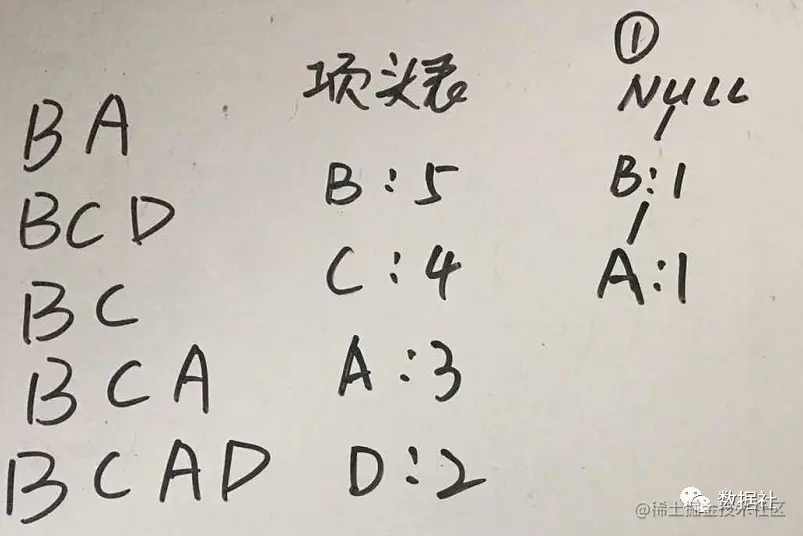 BA
BCD
BC
BCA
BCAD
项头表
B:5
C:4
A:3
D:2
①
NULL
B:1
A:1
数据社
@稀土掘金技术社区